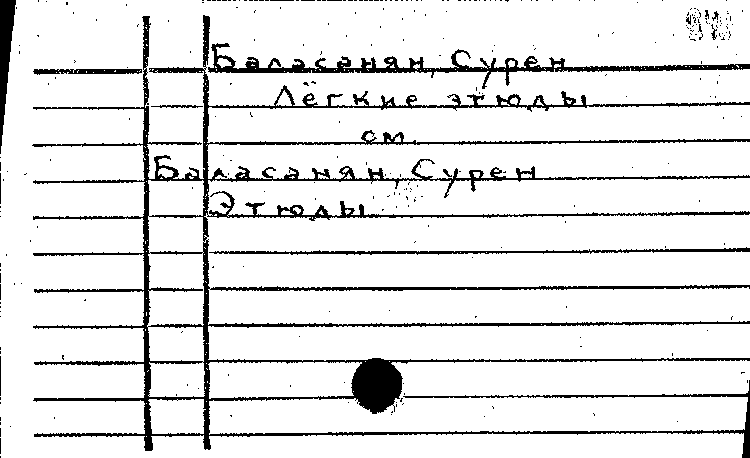 Баласанян, Сурен
Лёгкие этюды
см.
Баласанян, Сурен
Этюды